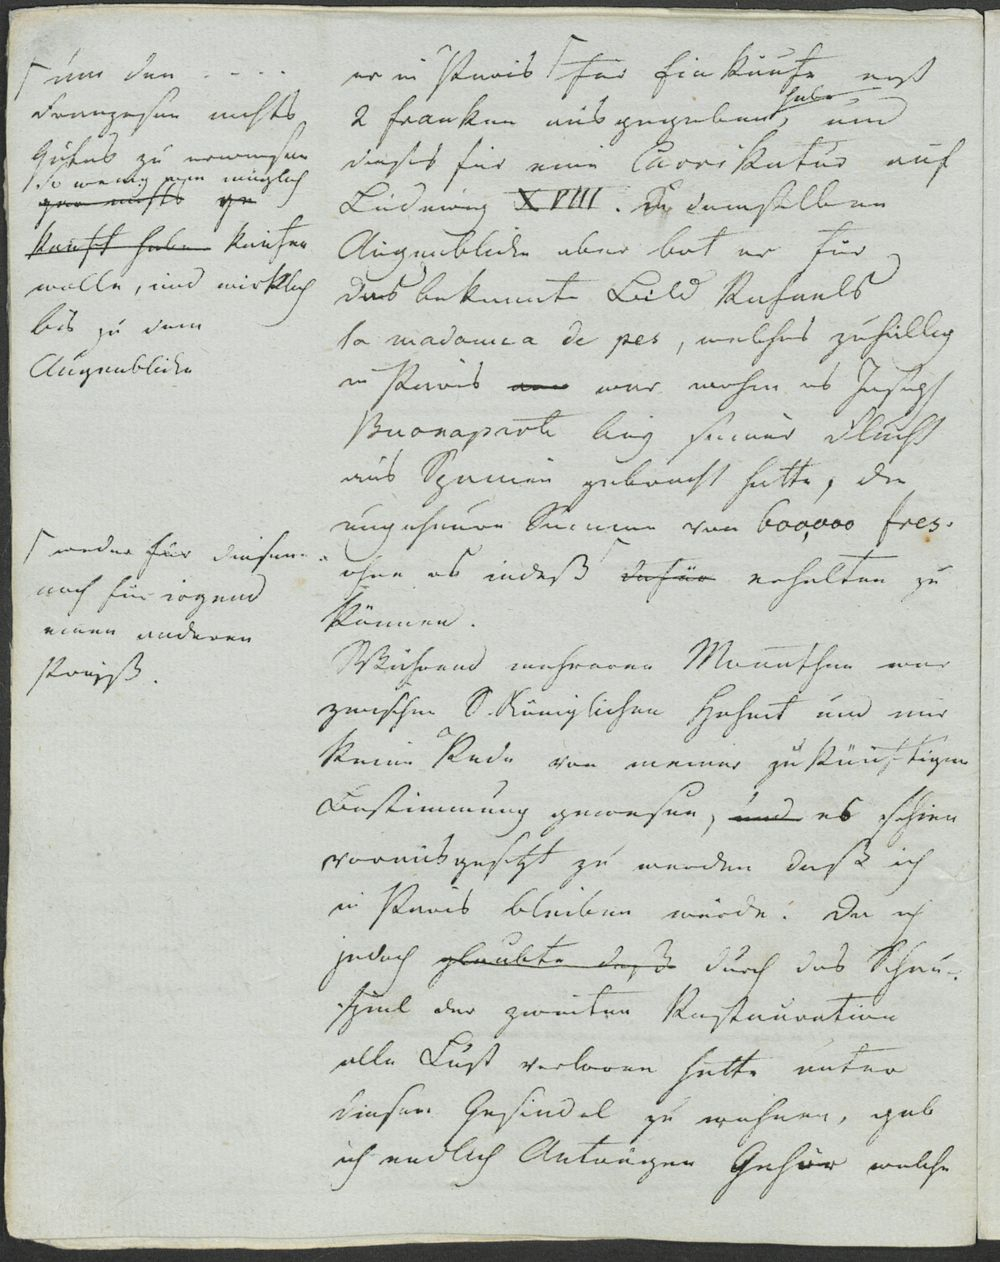 um den - - - -
Franzosen nichts
Gutes zu erweisen
so wenig wie möglich
gar nichts ge
kauft habe kaufen
wolle, und wirklich
bis zu dem
Augenblicke
weder für diesen
noch für irgend
einen anderen
Preiß.
er in Paris für Einkäufe erst
2 Franken ausgegeben habe, und
dieses für eine Carrikatur auf
Ludewig XVIII. In demselben
Augenblicke aber bot er für
das bekannte Bild Rafaels
la madonna de pes, welches zufällig
in Paris war wohin es Joseph
Buonaparte bey seiner Flucht
aus Spanien gebracht hatte, die
ungeheure Summe von 600,000 frcs.
ohne es indeß dafür erhalten zu
können.
Während mehreren Monathen war
zwischen S. Königlichen Hoheit und mir
keine Rede von meiner zukünftigen
Bestimmung gewesen, und es schien
vorausgesetzt zu werden daß ich
in Paris bleiben würde. Da ich
jedoch glaubte daß durch das Schau-
spiel der zweiten Restauration
alle Lust verloren hatte unter
diesem Gesindel zu wohnen, gab
ich endlich Anträgen Gehör welche